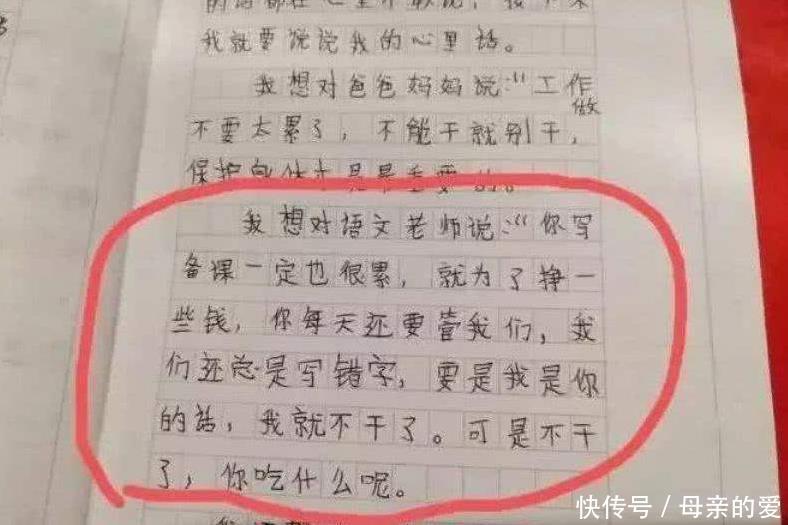 我就要说说我的心里话。
我想对爸爸妈妈说:“工作做
不要太累了，不能干就别干，
保护身体才是最重要的。
我想对语文老师说:“你写
备课一定也很累，就为了挣一
些钱，你每天还要管我们，我
们还总是写错字，要是我是你
的话，我就不干了。可是不干
了，你吃什么呢。
快传号/母亲的爱